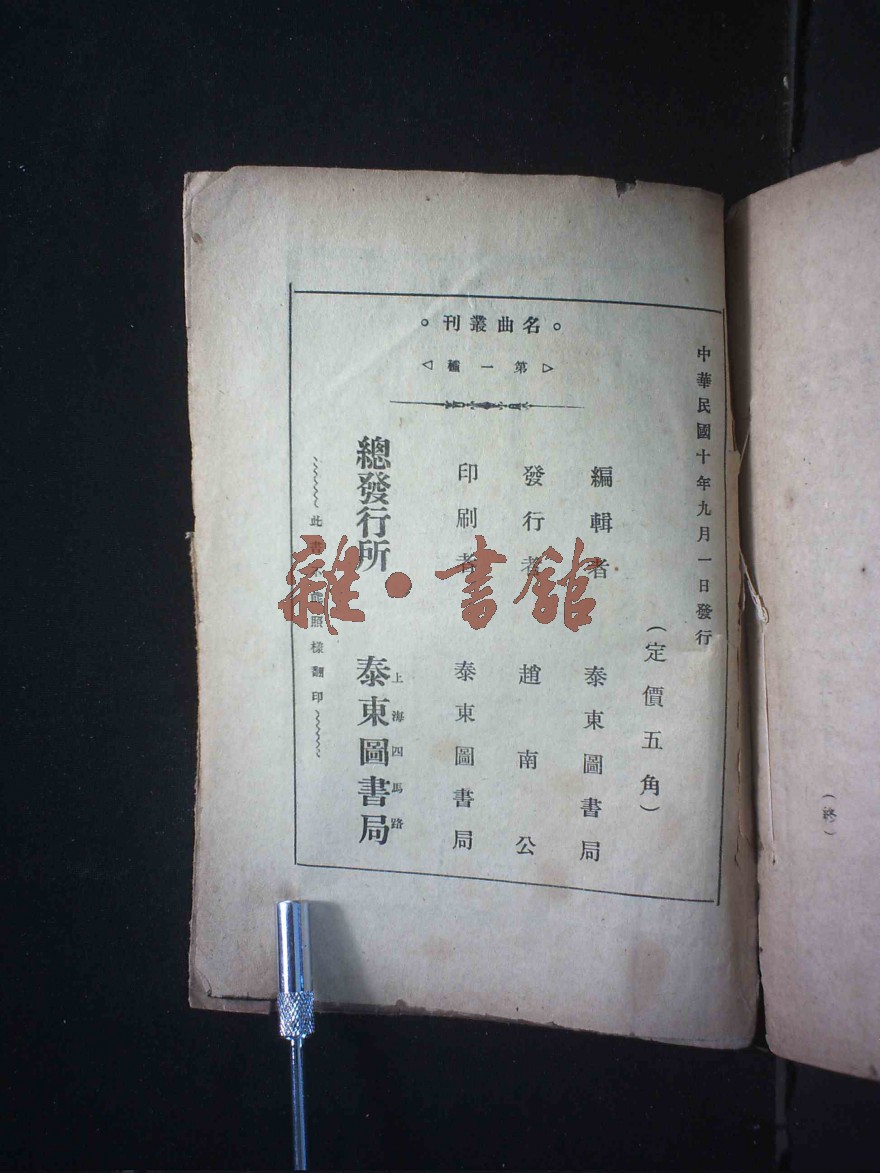 名曲叢刊
第一種
中華民國十年九月一日發行
（定價五角）
編輯者 泰東圖書局
發行者 趙南公
印刷者 泰東圖書局
上海四馬路
總發行所 泰東圖書局
此書不能照樣翻印
雜·書館
（終）